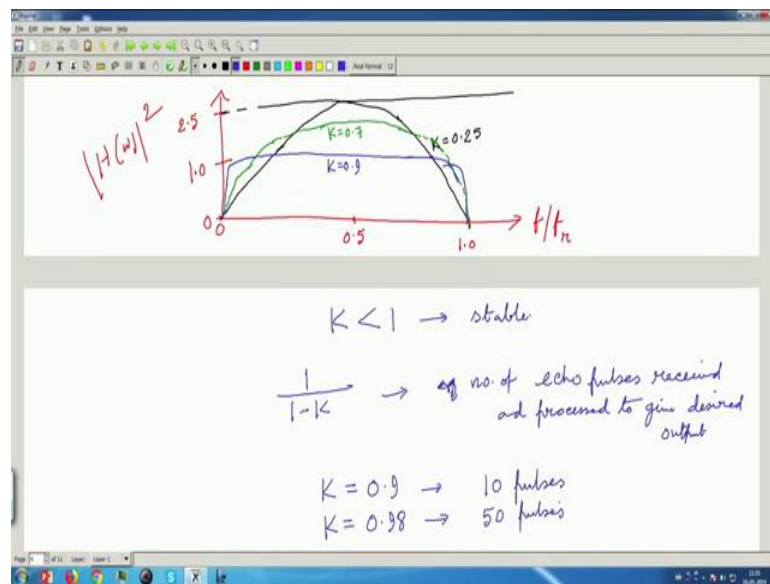 File Edit View Page Tools Options Help
Arial Normal 12
|H(ω)|²
2.5
K=0.7
K=0.25
1.0
K=0.9
0
0
0.5
1.0
f/fr
K < 1 → stable
1/(1-K) → no. of echo pulses received
ad processed to give desired
output
K = 0.9 → 10 pulses
K = 0.98 → 50 pulses
Page
of 11
Layer:
Layer 1